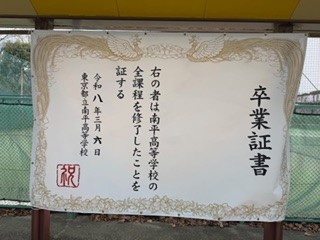 卒業証書
右の者は南平高等学校の
全課程を修了したことを
証する
令和八年三月六日
東京都立南平高等学校
祝